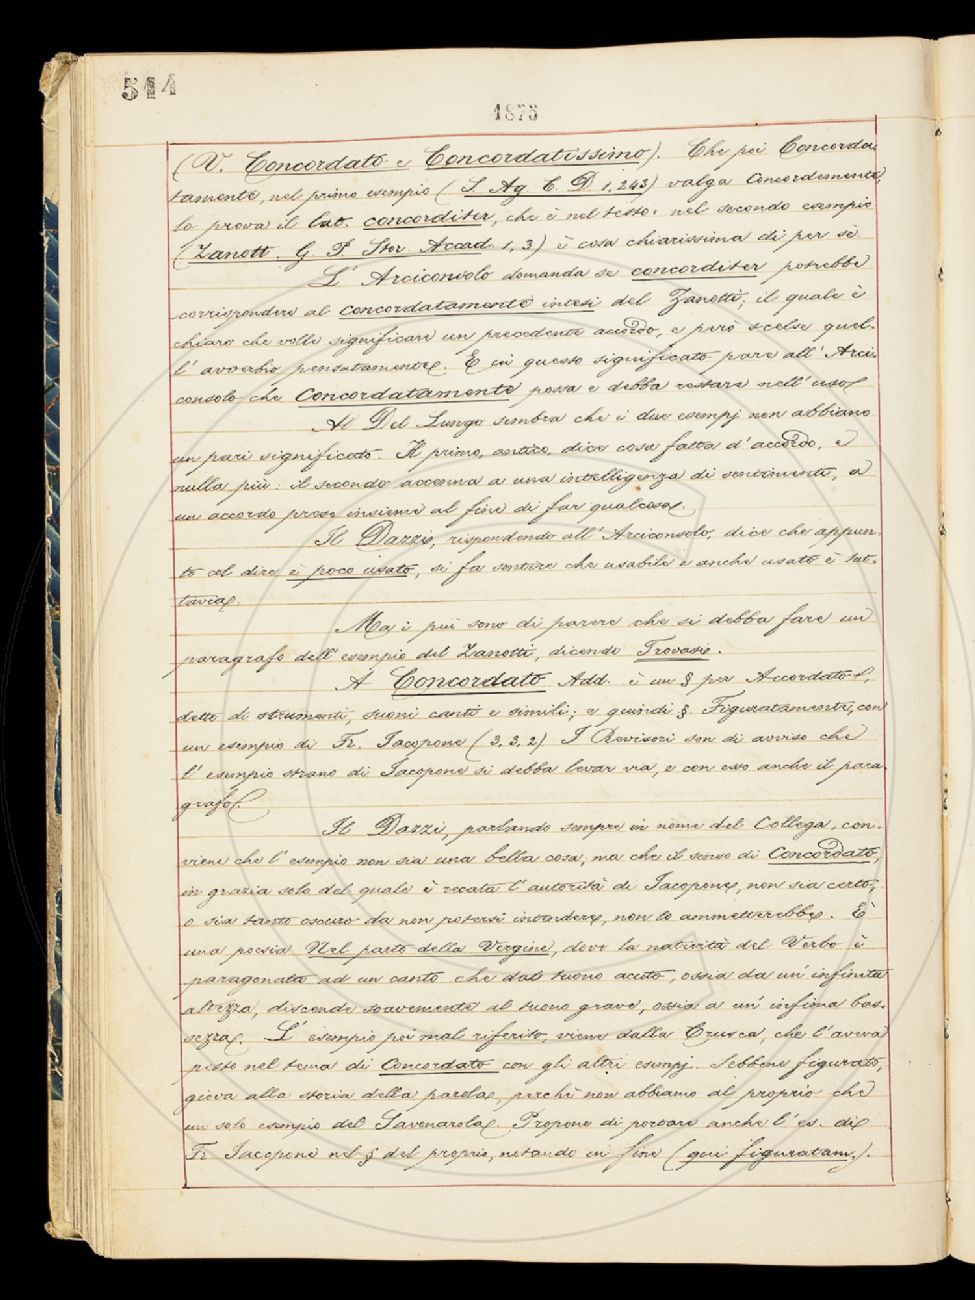 514
1875
(V. Concordato e Concordatissimo). Che poi Concorda-
tamente, nel primo esempio (S. Ag. C. D. 1, 243) valga Concordemente,
lo prova il lat. concorditer, che è nel testo: nel secondo esempio
(Zanott. G. P. Stor. Accad. 1, 3) è cosa chiarissima di per sè.
L' Arciconsolo domanda se concorditer potrebbe
corrispondere al concordatamente intesi del Zanotti; il quale è
chiaro che volle significare un precedente accordo, e però scelse quel-
l' avverbio pensatamente. E in questo significato pare all' Arci-
consolo che Concordatamente possa e debba restare nell' uso.
Al Del Lungo sembra che i due esempj non abbiano
un pari significato. Il primo, antico, dice cosa fatta d' accordo, e
nulla più: il secondo accenna a una intelligenza di sentimenti, a
un accordo preso insieme al fine di far qualcosa.
Il Dazzi, rispondendo all' Arciconsolo, dice che appun-
to col dire è poco usato, si fa sentire che usabile e anche usato è tut-
tavia.
Ma i più sono di parere che si debba fare un
paragrafo dell' esempio del Zanotti, dicendo Trovasi.
A Concordato Add. è un § per Accordato,
detto di strumenti, suoni canti e simili; e quindi §. Figuratamente, con
un esempio di Fr. Iacopone (3. 3. 2) I Revisori son di avviso che
l' esempio strano di Iacopone si debba levar via, e con esso anche il para-
grafo.
Il Dazzi, parlando sempre in nome del Collega, con-
viene che l' esempio non sia una bella cosa; ma che il senso di Concordato,
in grazia solo del quale è recata l' autorità di Iacopone, non sia certo,
o sia tanto oscuro da non potersi intendere, non lo ammetterebbe. È
una poesia Nel parto della Vergine, dove la natività del Verbo è
paragonata ad un canto che dal tuono acuto, ossia da un' infinita
altezza, discende soavemente al tuono grave, ossia a un' infima bas-
sezza. L' esempio poi mal riferito, viene dalla Crusca, che l' aveva
posto nel tema di Concordato con gli altri esempj. Sebbene figurato,
giova alla storia della parola, perchè non abbiamo al proprio che
un solo esempio del Savonarola. Propone di portare anche l' es. di
Fr. Iacopone nel § del proprio, notando in fine (qui figuratam.).